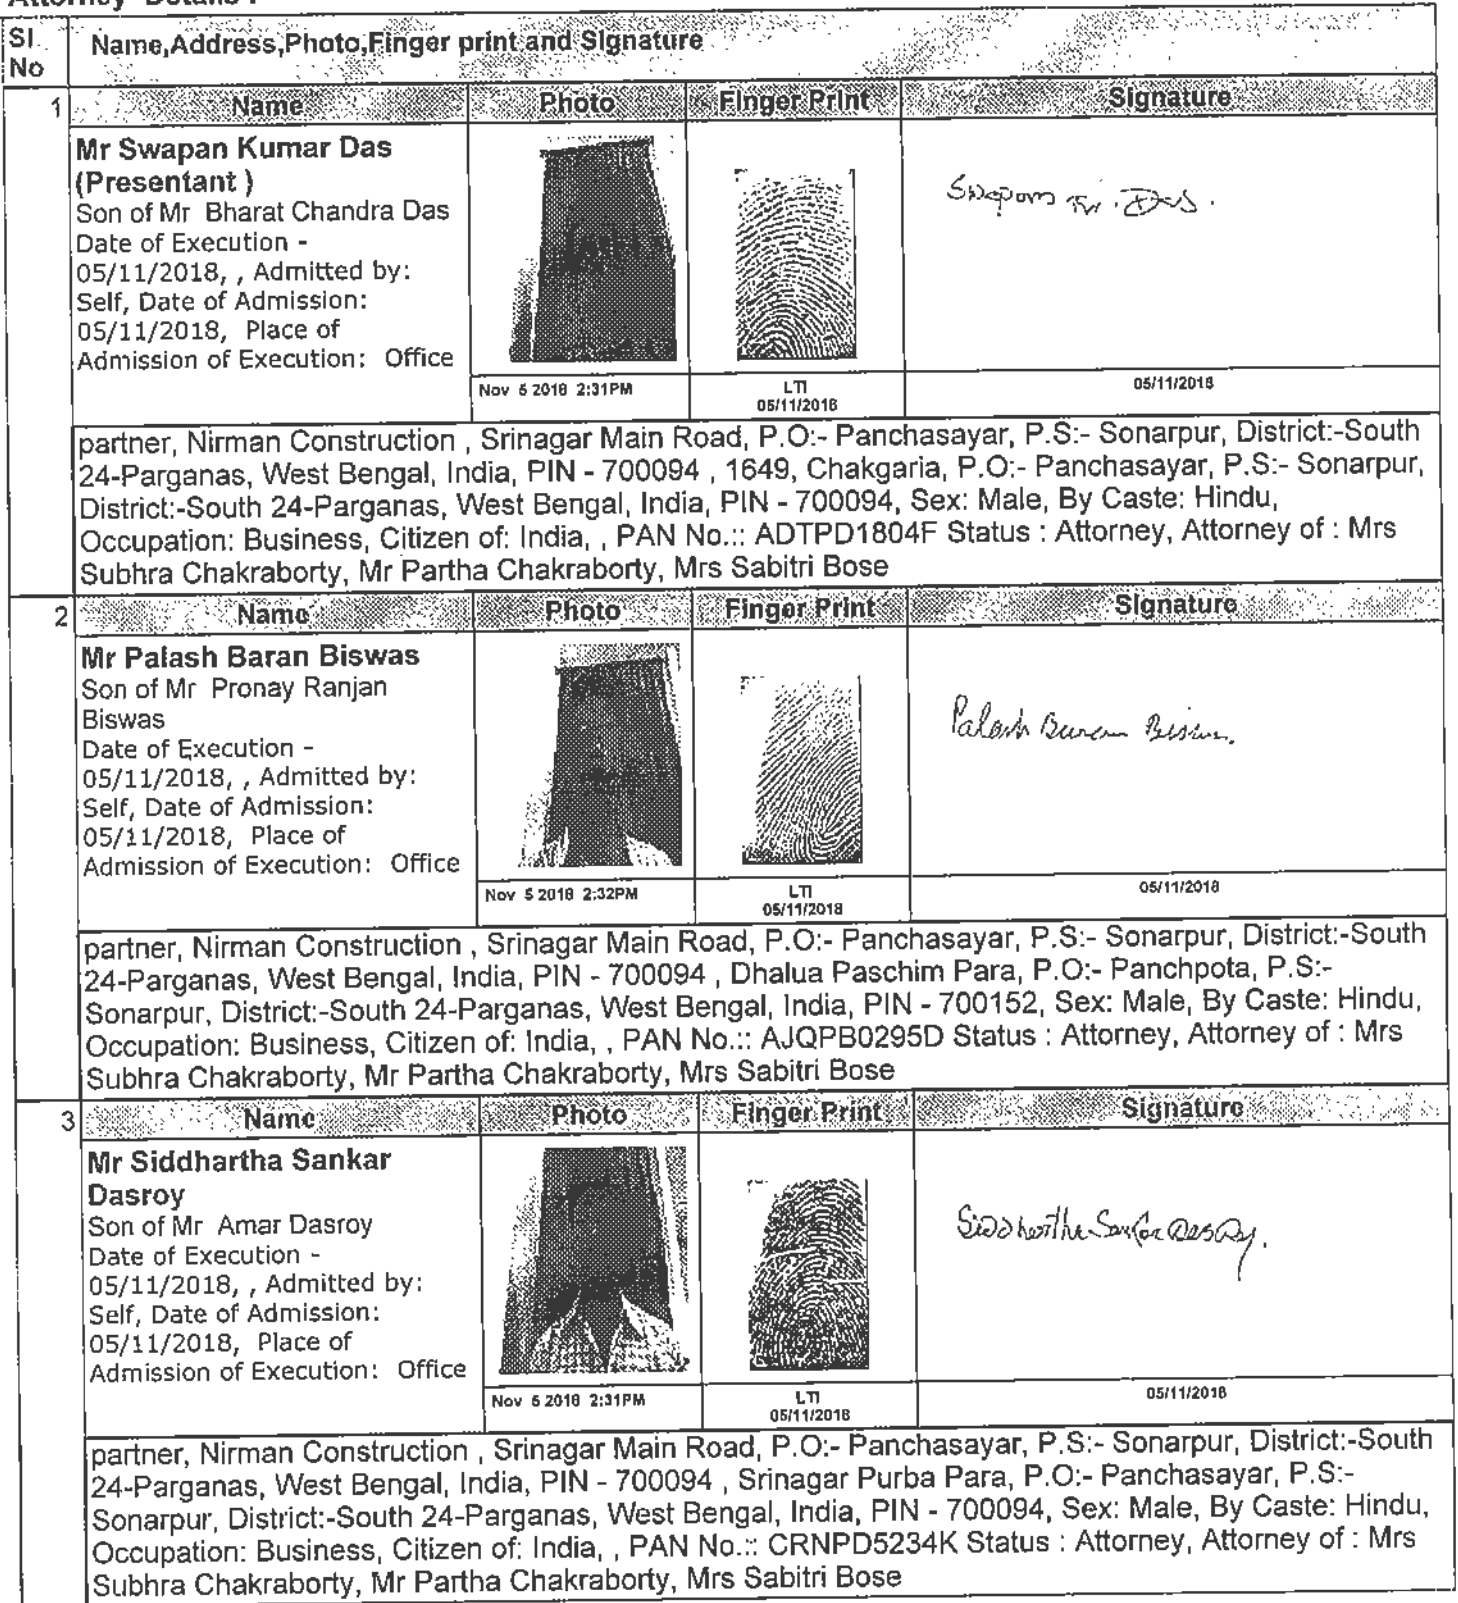 Attorney Details :
Sl No
Name,Address,Photo,Finger print and Signature
1
Name Photo Finger Print Signature
Mr Swapan Kumar Das
(Presentant )
Son of Mr Bharat Chandra Das
Date of Execution -
05/11/2018, , Admitted by:
Self, Date of Admission:
05/11/2018, Place of
Admission of Execution: Office
Swapan Kr. Das.
Nov 5 2018 2:31PM
LTI
05/11/2018
05/11/2018
partner, Nirman Construction , Srinagar Main Road, P.O:- Panchasayar, P.S:- Sonarpur, District:-South
24-Parganas, West Bengal, India, PIN - 700094 , 1649, Chakgaria, P.O:- Panchasayar, P.S:- Sonarpur,
District:-South 24-Parganas, West Bengal, India, PIN - 700094, Sex: Male, By Caste: Hindu,
Occupation: Business, Citizen of: India, , PAN No.:: ADTPD1804F Status : Attorney, Attorney of : Mrs
Subhra Chakraborty, Mr Partha Chakraborty, Mrs Sabitri Bose
2
Name Photo Finger Print Signature
Mr Palash Baran Biswas
Son of Mr Pronay Ranjan
Biswas
Date of Execution -
05/11/2018, , Admitted by:
Self, Date of Admission:
05/11/2018, Place of
Admission of Execution: Office
Palash Baran Biswas.
Nov 5 2018 2:32PM
LTI
05/11/2018
05/11/2018
partner, Nirman Construction , Srinagar Main Road, P.O:- Panchasayar, P.S:- Sonarpur, District:-South
24-Parganas, West Bengal, India, PIN - 700094 , Dhalua Paschim Para, P.O:- Panchpota, P.S:-
Sonarpur, District:-South 24-Parganas, West Bengal, India, PIN - 700152, Sex: Male, By Caste: Hindu,
Occupation: Business, Citizen of: India, , PAN No.:: AJQPB0295D Status : Attorney, Attorney of : Mrs
Subhra Chakraborty, Mr Partha Chakraborty, Mrs Sabitri Bose
3
Name Photo Finger Print Signature
Mr Siddhartha Sankar
Dasroy
Son of Mr Amar Dasroy
Date of Execution -
05/11/2018, , Admitted by:
Self, Date of Admission:
05/11/2018, Place of
Admission of Execution: Office
Siddhartha Sankar Dasroy.
Nov 5 2018 2:31PM
LTI
05/11/2018
05/11/2018
partner, Nirman Construction , Srinagar Main Road, P.O:- Panchasayar, P.S:- Sonarpur, District:-South
24-Parganas, West Bengal, India, PIN - 700094 , Srinagar Purba Para, P.O:- Panchasayar, P.S:-
Sonarpur, District:-South 24-Parganas, West Bengal, India, PIN - 700094, Sex: Male, By Caste: Hindu,
Occupation: Business, Citizen of: India, , PAN No.:: CRNPD5234K Status : Attorney, Attorney of : Mrs
Subhra Chakraborty, Mr Partha Chakraborty, Mrs Sabitri Bose